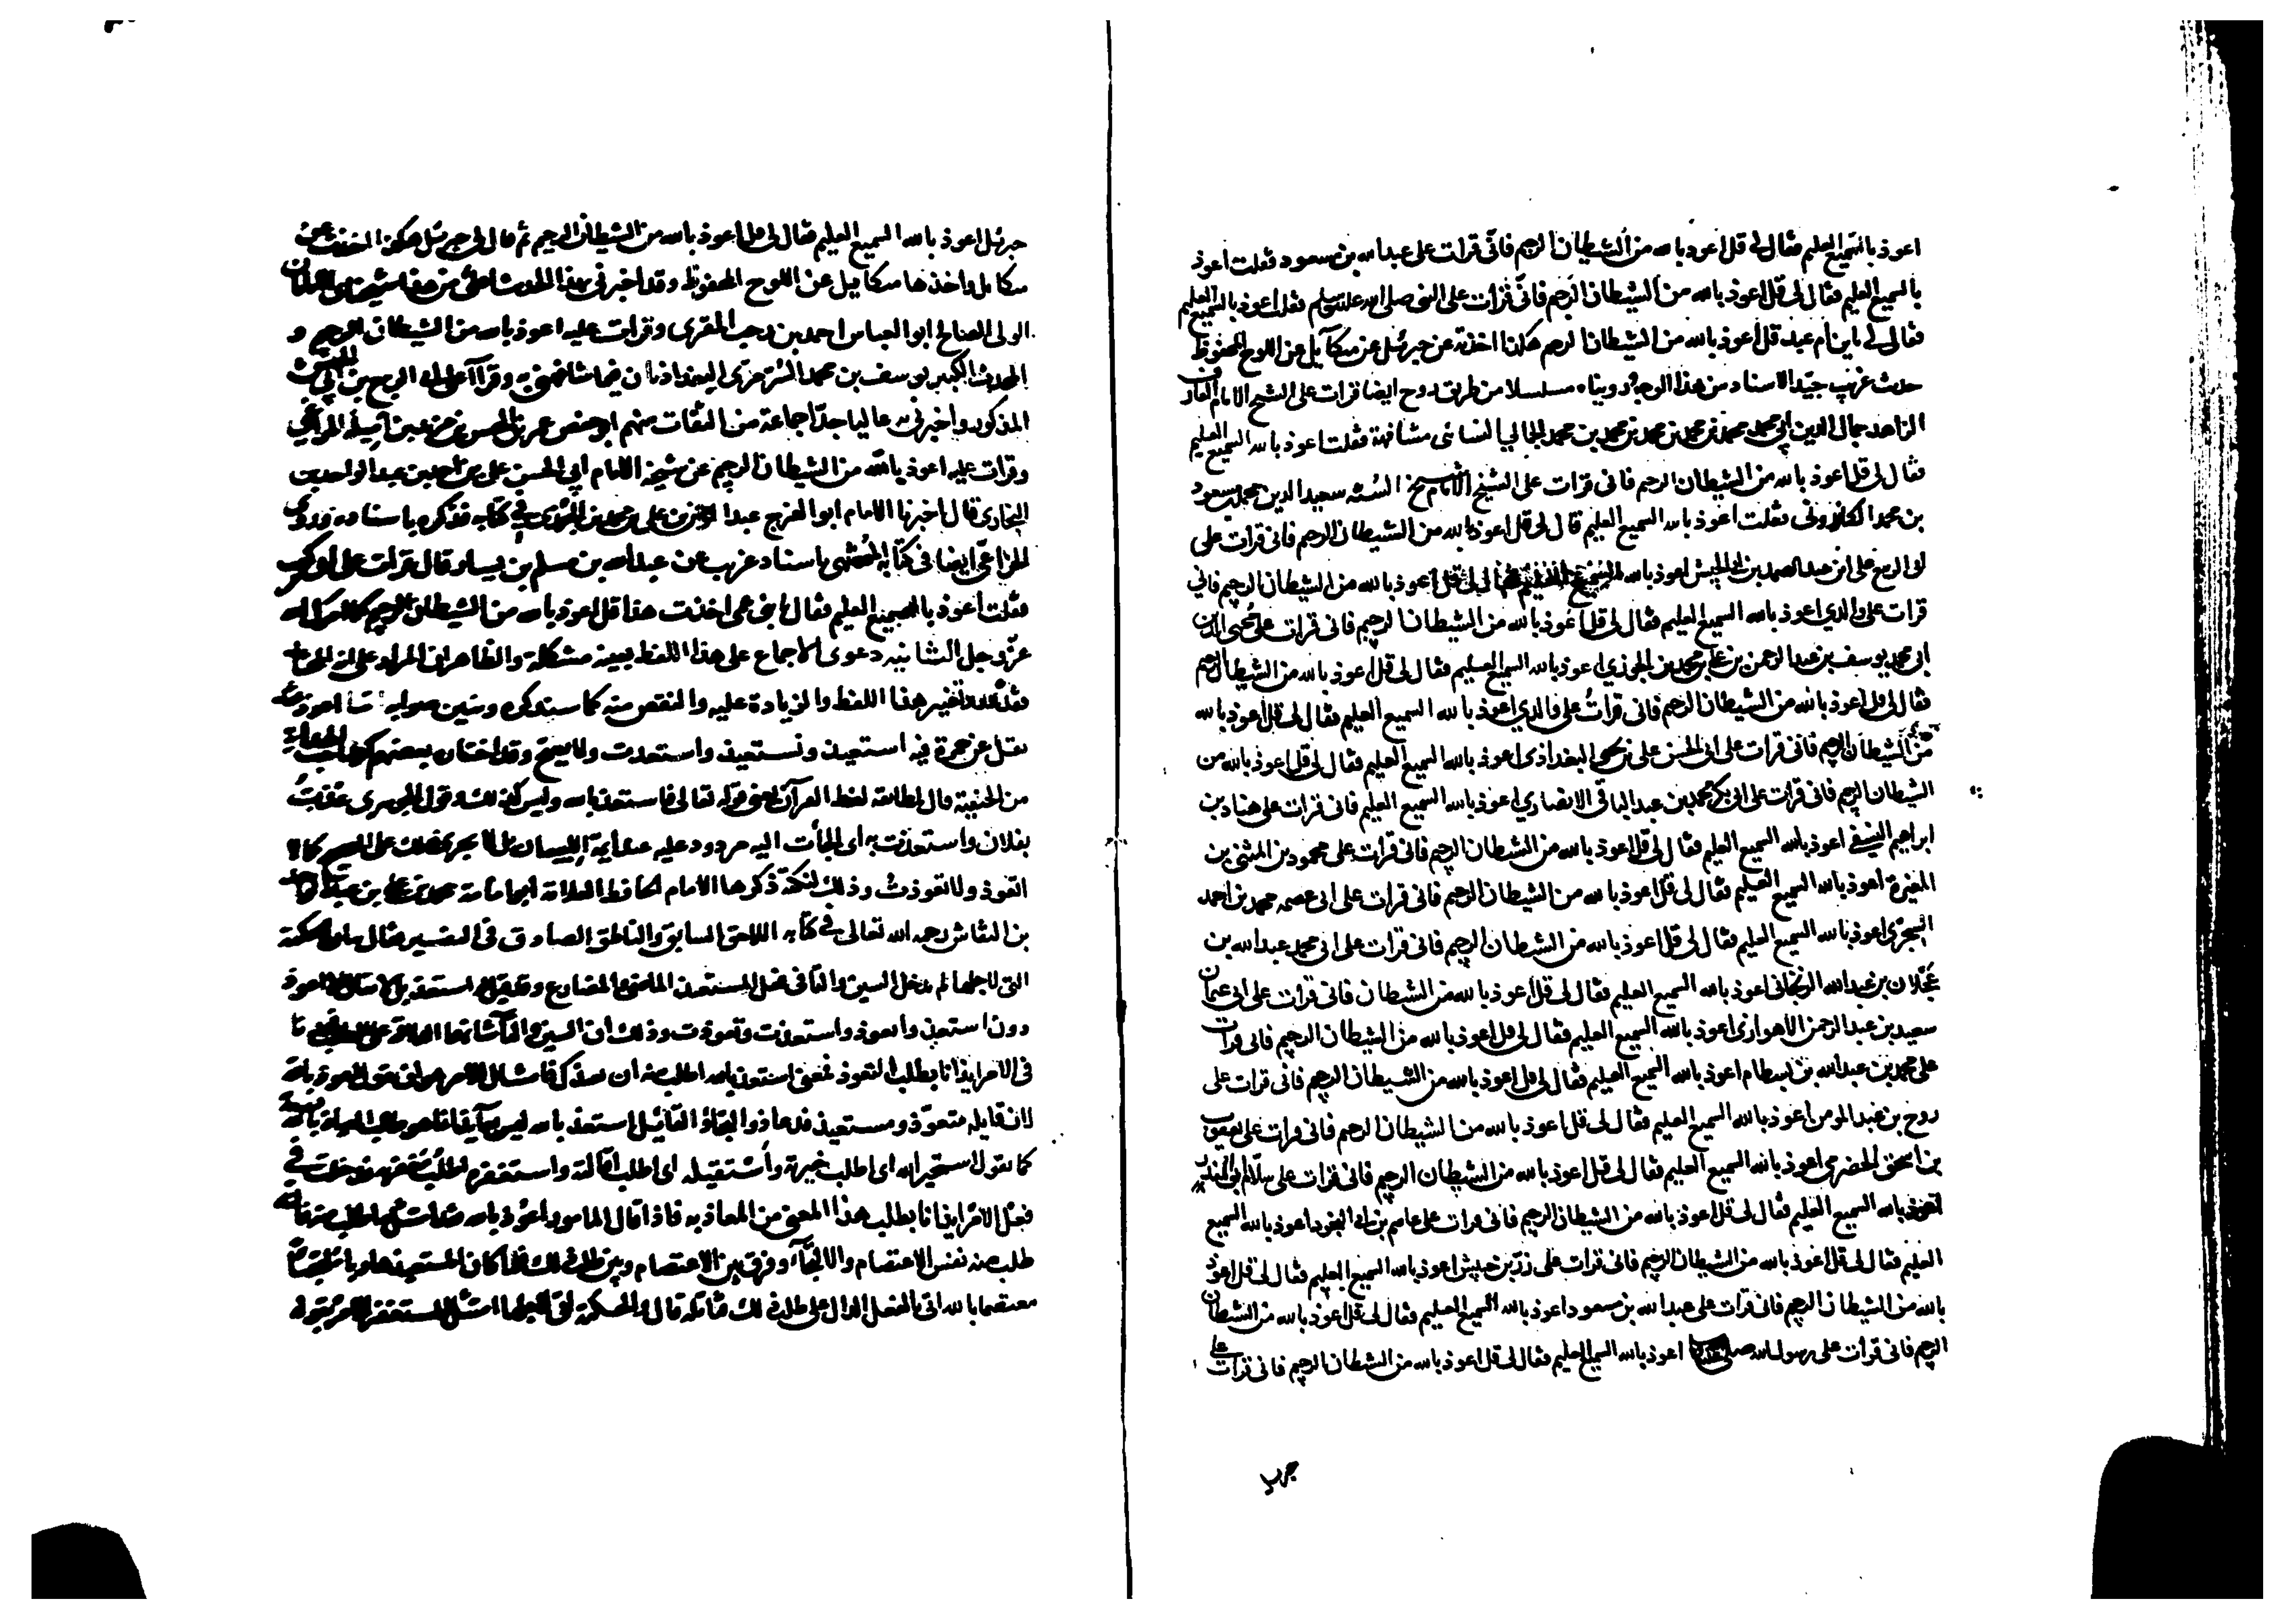 اعوذ بالسميع العليم فقال لي قل اعوذ بالله من الشيطان الرجيم فاني قرات على عبد الله بن مسعود فقلت اعوذ
بالسميع العليم فقال لي قل اعوذ بالله من الشيطان الرجيم فاني قرات على النبي صلى الله عليه وسلم فقلت اعوذ بالسميع العليم
فقال لي يا بن ام عبد قل اعوذ بالله من الشيطان الرجيم هكذا اخذته عن جبرئيل عن ميكائيل عن اللوح المحفوظ
حديث غريب جيد الاسناد من هذا الوجه ورويناه مسلسلا من طريق روح ايضا قرات على الشيخ الامام العارف
الزاهد جمال الدين ابي محمد محمد بن محمد بن محمد بن محمد الجمالي النسائي مشافهة فقلت اعوذ بالله السميع العليم
فقال لي قل اعوذ بالله من الشيطان الرجيم فاني قرات على الشيخ الامام شيخ السنه سعيد الدين محمد بن مسعود
بن محمد الكازروني فقلت اعوذ بالله السميع العليم قال لي قل اعوذ بالله من الشيطان الرجيم فاني قرات على
ابي الربيع علي ابن عبد الصمد بن ابي الجيش اعوذ بالله السميع العليم فقال لي قل اعوذ بالله من الشيطان الرجيم فاني
قرات على والدي اعوذ بالله السميع العليم فقال لي قل اعوذ بالله من الشيطان الرجيم فاني قرات على محيي الدين
ابي محمد يوسف بن عبد الرحمن بن علي بن محمد بن الجوزي اعوذ بالله السميع العليم فقال لي قل اعوذ بالله من الشيطان الرجيم
فقال لي قل اعوذ بالله من الشيطان الرجيم فاني قرات على والدي اعوذ بالله السميع العليم فقال لي قل اعوذ بالله
من الشيطان الرجيم فاني قرات على ابي الحسن علي بن يحيى البغدادي اعوذ بالله السميع العليم فقال لي قل اعوذ بالله من
الشيطان الرجيم فاني قرات على ابي بكر محمد بن عبد الباقي الانصاري اعوذ بالله السميع العليم فاني قرات على هناد بن
ابراهيم النسفي اعوذ بالله السميع العليم فقال لي قل اعوذ بالله من الشيطان الرجيم فاني قرات على محمود بن المثنى بن
المغيرة اعوذ بالله السميع العليم فقال لي قل اعوذ بالله من الشيطان الرجيم فاني قرات على ابي عصمه محمد بن احمد
السجزي اعوذ بالله السميع العليم فقال لي قل اعوذ بالله من الشيطان الرجيم فاني قرات على ابي محمد عبد الله بن
عجلان بن عبد الله الزنجاني اعوذ بالله السميع العليم فقال لي قل اعوذ بالله من الشيطان فاني قرات على ابي عثمان
سعيد بن عبد الرحمن الاهوازي اعوذ بالله السميع العليم فقال لي قل اعوذ بالله من الشيطان الرجيم فاني قرات
على محمد بن عبد الله بن بسطام اعوذ بالله السميع العليم فقال لي قل اعوذ بالله من الشيطان الرجيم فاني قرات على
روح بن عبد المومن اعوذ بالله السميع العليم فقال لي قل اعوذ بالله من الشيطان الرجيم فاني قرات على يعقوب
بن اسحق الحضرمي اعوذ بالله السميع العليم فقال لي قل اعوذ بالله من الشيطان الرجيم فاني قرات على سلام ابي المنذر
اعوذ بالله السميع العليم فقال لي قل اعوذ بالله من الشيطان الرجيم فاني قرات على عاصم بن ابي النجود اعوذ بالله السميع
العليم فقال لي قل اعوذ بالله من الشيطان الرجيم فاني قرات على زر بن حبيش اعوذ بالله السميع العليم فقال لي قل اعوذ
بالله من الشيطان الرجيم فاني قرات على عبد الله بن مسعود اعوذ بالله السميع العليم فقال لي قل اعوذ بالله من الشيطان
الرجيم فاني قرات على رسول الله صلى اعوذ بالله السميع العليم فقال لي قل اعوذ بالله من الشيطان الرجيم فاني قرات على
جبرئيل
جبرئيل اعوذ بالله السميع العليم فقال لي قل اعوذ بالله من الشيطان الرجيم ثم قال لي جبرئيل هكذا اخذت عن
ميكائيل واخذها ميكائيل عن اللوح المحفوظ وقد اخبرني بهذا الحديث اعلى من هذا شيخاي الامامان
الولي الصالح ابو العباس احمد بن رجب المقري وقرات عليه اعوذ بالله من الشيطان الرجيم و
المحدث الكبير يوسف بن محمد السرمري البغداديان فيما شافهني به وقرآ على ابي الربيع بن ابي الجيش
المذكور واخبرني به عاليا جدا جماعة من الثقات منهم ابو حفص عمر بن الحسن بن مزيد بن اميلة المراغي
وقرات عليه اعوذ بالله من الشيطان الرجيم عن شيخه الامام ابي الحسن علي بن احمد بن عبد الواحد بن
البخاري قال اخبرنا الامام ابو الفرج عبد الرحمن بن علي بن محمد بن الجوزي في كتابه فذكره باسناده وروى
الخزاعي ايضا في كتابه المنتهى باسناد غريب عن عبد الله بن مسلم بن يسار قال قرات على ابي بن كعب
فقلت اعوذ بالسميع العليم فقال يا بني عمن اخذت هذا قل اعوذ بالله من الشيطان الرجيم كما امرك الله
عز وجل الثانيه دعوى الاجماع على هذا اللفظ بعينه مشكلة والظاهر ان المراد على انه المختار
فقد ورد تغيير هذا اللفظ والزيادة عليه والنقص منه كما سنذكره ونبين صوابه اما اعوذ فقد
نقل عن حمزة فيه استعيذ ونستعيذ واستعذت ولا يصح وقد اختاره بعضهم كصاحب الهداية
من الحنفية قال لمطابقة لفظ القرآن يعني قوله تعالى فاستعذ بالله وليس كذلك وقول الجوهري عذت
بفلان واستعذت به اي لجأت اليه مردود عليه عند ايمة اللسان بل لا يجزي ذلك على الصحيح كما لا
اتعوذ ولا تعوذت وذلك لنكتة ذكرها الامام الحافظ العلامة ابو امامة محمد بن علي بن عبد الواحد
بن النقاش رحمه الله تعالى في كتابه اللاحق السابق والناطق الصادق في التفسير فقال بيان الحكمة
التي لاجلها لم تدخل السين والتا في فعل المستعيذ الماضي والمضارع وقد قيل له استعذ بل لا يقال الا اعوذ
دون استعيذ واتعوذ واستعذت وتعوذت وذلك ان السين والتآ شانهما الدلالة على الطلب
في الامر ايذانا بطلب التعوذ فمعنى استعذ بالله اطلب منه ان يعيذك فامتثال الامر هو ان تقول اعوذ بالله
لان قايله متعوذ ومستعيذ قد عاذ والتجأ والقائل استعيذ بالله ليس بعائذ انما هو طالب العياذ به
كما تقول استخير الله اي اطلب خيرته واستقيله اي اطلب اقالته واستغفره اي اطلب مغفرته فدخلت في
فعل الامر ايذانا بطلب هذا المعنى من المعاذ به فاذا قال المامور اعوذ بالله فقد امتثل ما طلب منه فانه
طلب منه نفس الاعتصام والالتجآ وفرق بين الاعتصام وبين طلب ذلك فلما كان المستعيذ هاربا ملتجيا
معتصما بالله اتى بالفعل الدال على طلب ذلك فتامله قال والحكمة التي لاجلها امتثل المستغفر الامر بقوله